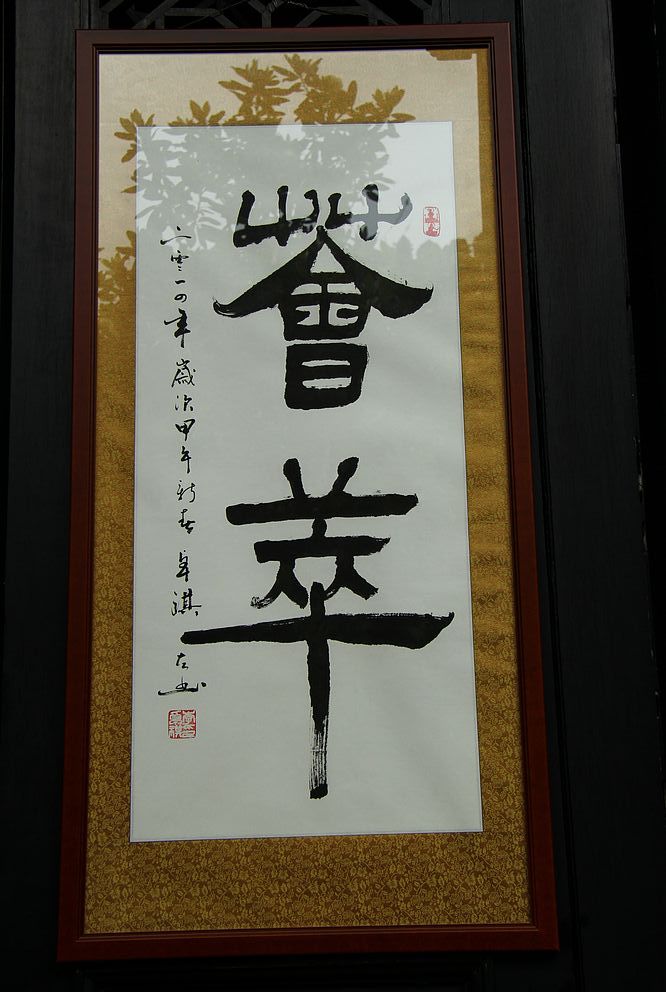 薈萃
二零一四年歲次甲午新春 祺左书